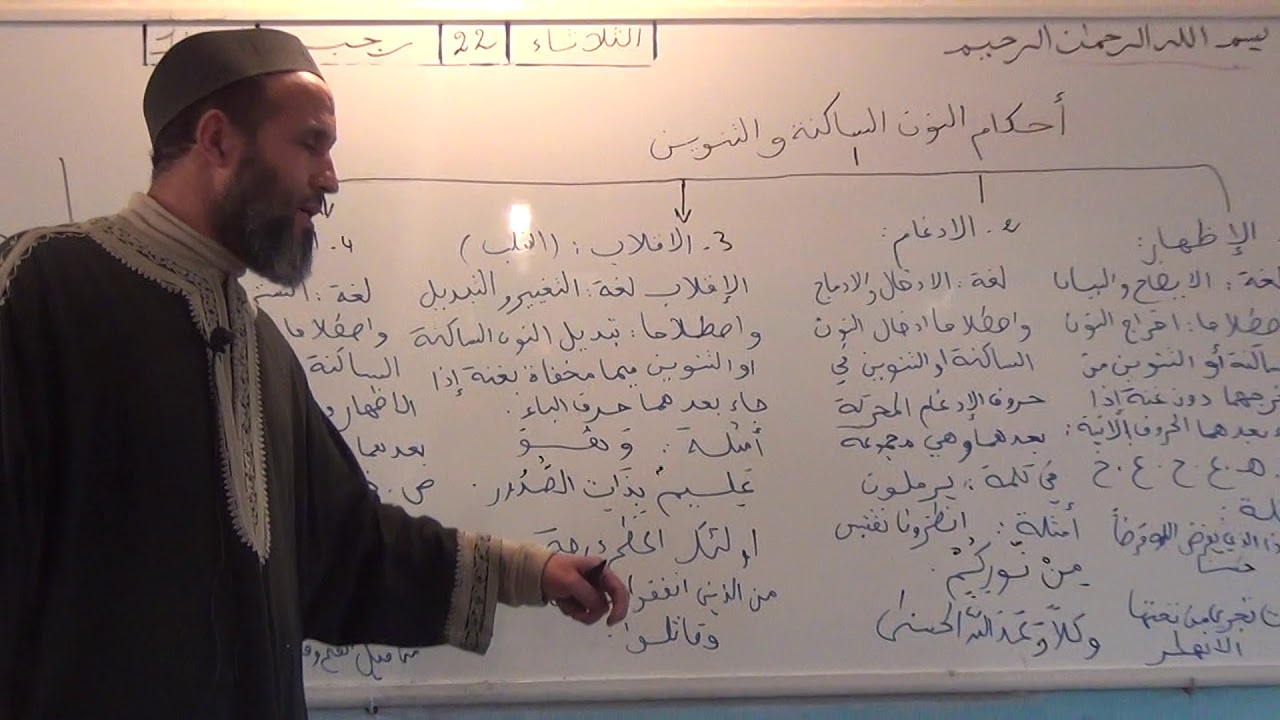 بسم الله الرحمان الرحيم
الثلاثاء 22 رجب
أحكام النون الساكنة والتنوين
الإظهار:
لغة: الايضاح والبيان
اصطلاحا: اخراج النون
الساكنة أو التنوين من
مخرجها دون غنة إذا
بعدهما الحروف الآتية:
هـ . ع . ح . غ . خ
الذي يقرض الله قرضاً
حسنا
تجري من تحتها
الانهار
2. الادغام:
لغة: الادخال والادماج
واصطلاحا ادخال النون
الساكنة او التنوين في
حروف الإدغام المحركة
بعدهما وهي مجموعة
في كلمة: يرملون
أمثلة: انظرونا نقتبس
مِنْ نُّورِكُمْ.
وكلاًّ وَّعَدَ اللَّهُ الحسنى
3. الاقلاب: (القلب)
الإقلاب لغة: التغيير والتبديل
واصطلاحا: تبديل النون الساكنة
او التنوين ميما مخفاة بغنة إذا
جاء بعدهما حرف الباء.
أمثلة: وَهُوَ
عَلِيمٌ بِذَاتِ الصُّدُورِ.
أولئك أعظم درجة
من الذين انفقوا
وقاتلوا.
4.
لغة: الستر
واصطلاحا
الساكنة
الاظهار و
بعدهما
ص . ذ